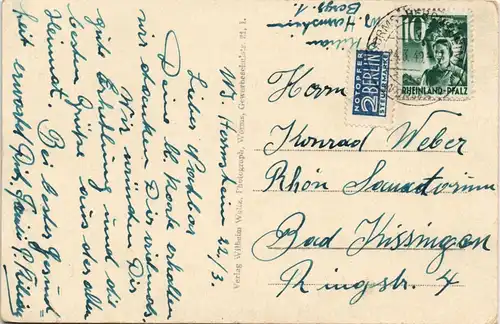 Ws Herrnsheim 22/3
Lieber
Deine l. Karte erhalten
wir danken Dir vielmals.
Wir wünschen Dir
gute Erholung und die
besten Grüße aus der alten
Heimat. Bei bester Gesund=
heit erwartet Dich
Verlag Wilhelm Wolte, Photograph, Worms, Gewerbeschulstr. 21, I.
W Herrnsheim
NOTOPFER
2 BERLIN
STEUERMARKE
10
RHEINLAND-PFALZ
Herrn
Konrad Weber
Rhön Sanatorium
Bad Kissingen
Ringstr. 4